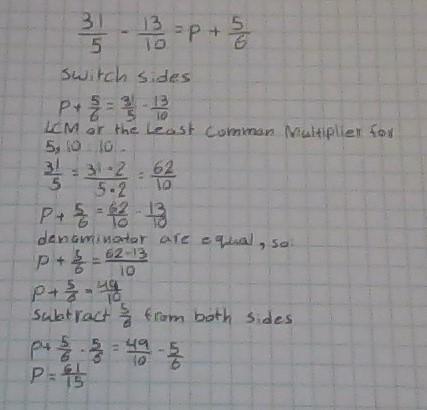 31/5 - 13/10 = p + 5/6
switch sides
p + 5/6 = 31/5 - 13/10
LCM or the Least Common Multiplier for
5, 10 : 10.
31/5 = 31·2/5·2 = 62/10
p + 5/6 = 62/10 - 13/10
denominator are equal, so:
p + 5/6 = 62-13/10
p + 5/6 = 49/10
subtract 5/6 from both sides
p + 5/6 - 5/6 = 49/10 - 5/6
p = 61/15